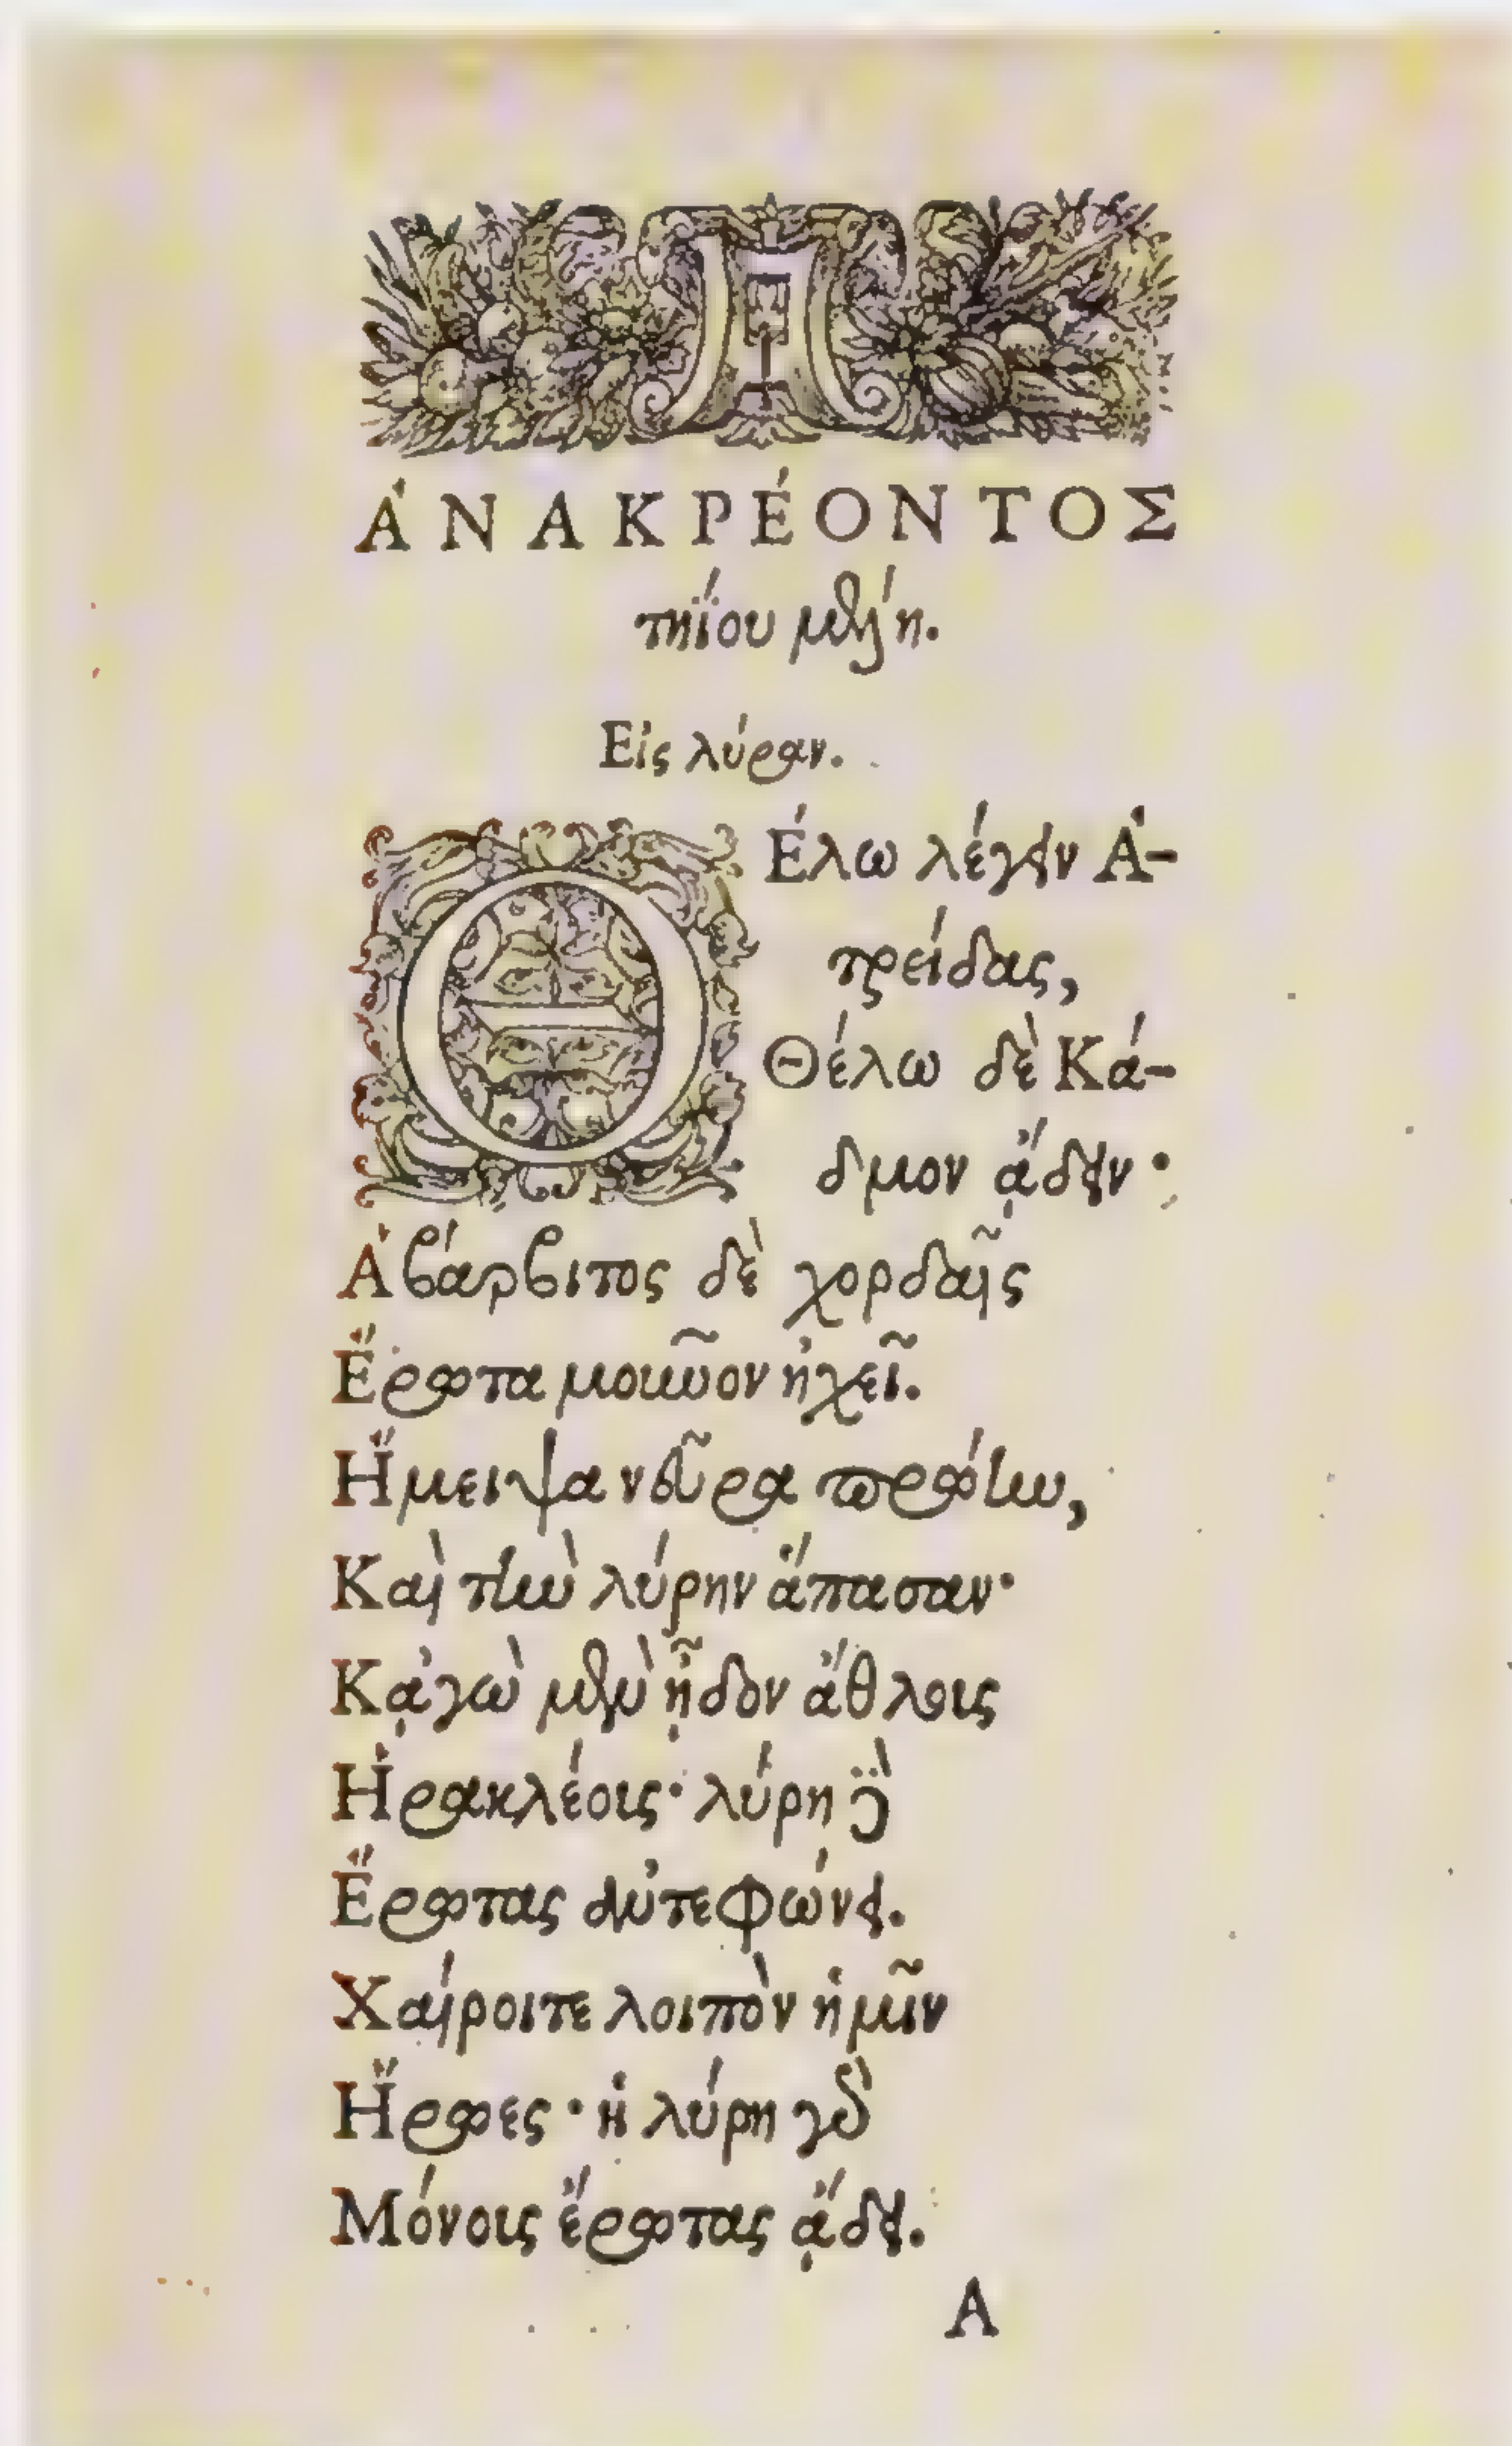 ἈΝΑΚΡΈΟΝΤΟΣ
τηΐου μέλη.
Εἰς λύραν.
ΘΈλω λέγειν Ἀ-
τρείδας,
Θέλω δὲ Κά-
δμον ᾄδειν·
Ἀβάρβιτος δὲ χορδαῖς
Ἔρωτα μοιῦον ἠχεῖ.
Ἤμειψα νεῦρα πρώην,
Καὶ τὴν λύρην ἅπασαν·
Κᾀγὼ μὲν ᾖδον ἄθλοις
Ἡρακλέοις· λύρη δὲ
Ἔρωτας ἀντεφώνει.
Χαίροιτε λοιπὸν ἡμῖν
Ἥρωες· ἡ λύρη γὰρ
Μόνοις ἔρωτας ᾄδει.
A